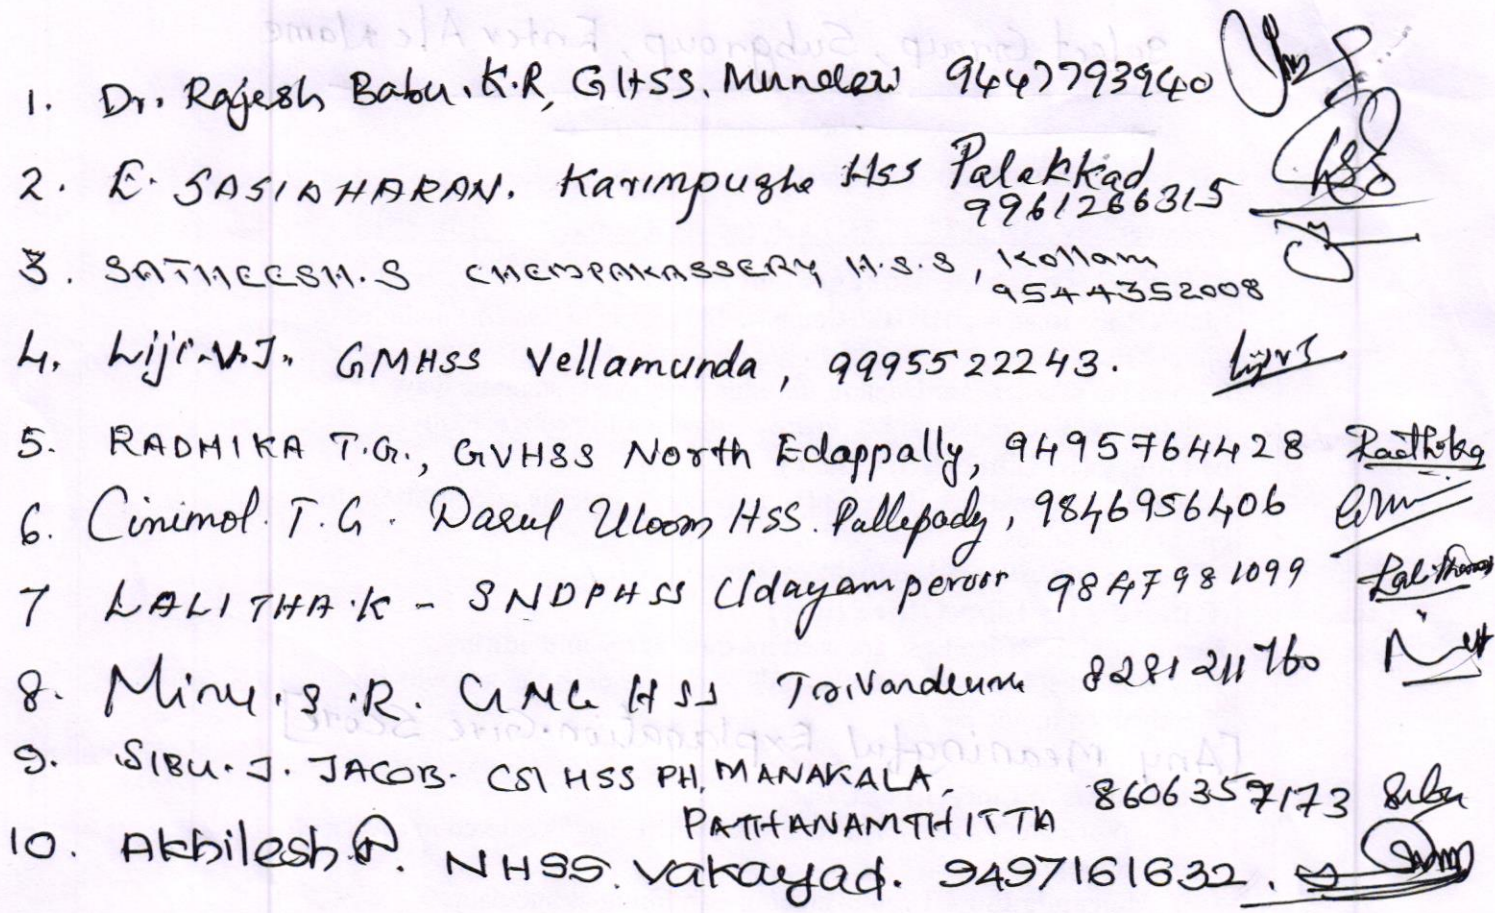 1. Dr. Rajesh Babu. K.R, GHSS. Mundur 9447793940
2. E. SASIDHARAN. Karimpuzha HSS Palakkad
9961266315
3. SATHEESH.S CHEMPAKASSERY H.S.S, Kollam
9544352008
4. Liji.V.J. GMHSS Vellamunda, 9995522243. Liji V J
5. RADHIKA T.G., GVHSS North Edappally, 9495764428 Radhika
6. Cinimol. T. G. Darul Uloom HSS. Pullepady, 9846956406
7 LALITHA.K - SNDPHSS Udayamperoor 9847981099
8. Minu.S.R. HSS Trivandrum 8281211760
9. SIBU. J. JACOB. CSI HSS PH, MANAKALA,
PATHANAMTHITTA 8606357173 Sibu
10. Akhilesh.P. NHSS. Vakayad. 9497161632.